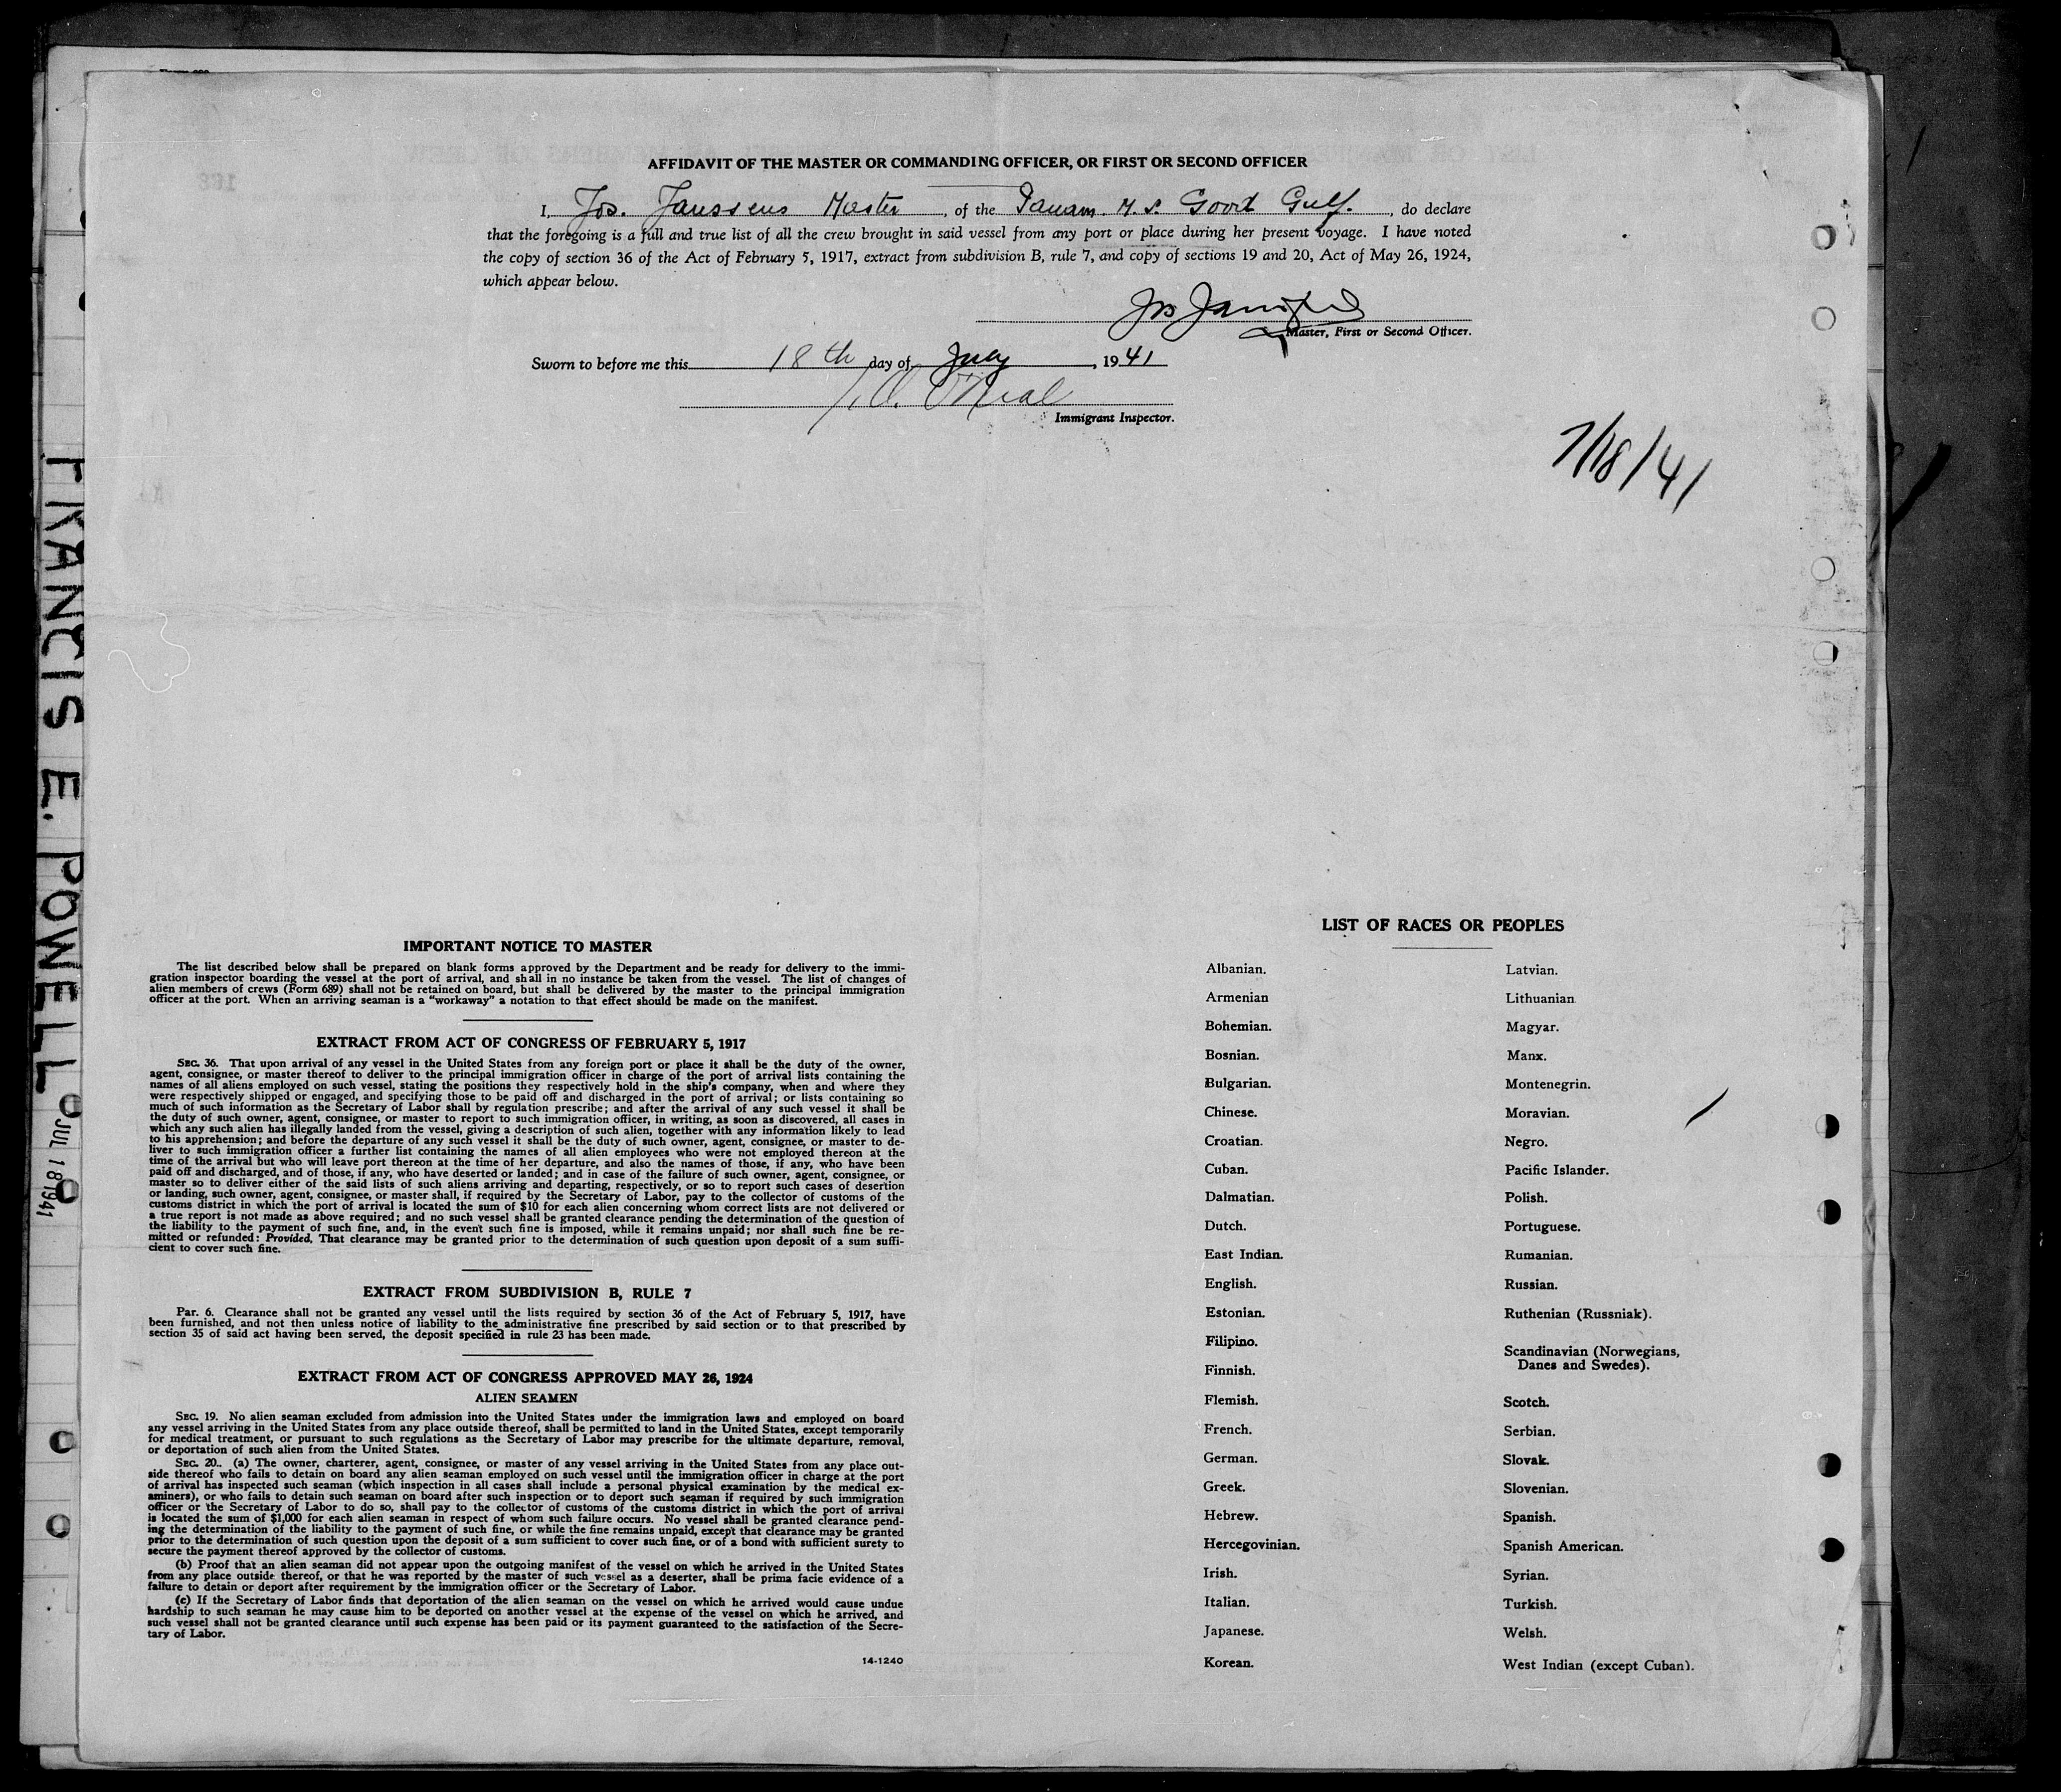 AFFIDAVIT OF THE MASTER OR COMMANDING OFFICER, OR FIRST OR SECOND OFFICER
I, Jos. Janssens Master, of the Panam. M.S. Good Gulf., do declare
that the foregoing is a full and true list of all the crew brought in said vessel from any port or place during her present voyage. I have noted
the copy of section 36 of the Act of February 5, 1917, extract from subdivision B, rule 7, and copy of sections 19 and 20, Act of May 26, 1924,
which appear below.
Jos Janssens
Master, First or Second Officer.
Sworn to before me this 18th day of July, 1941
O'Neal
Immigrant Inspector.
7/18/41
FRANCIS E. POWELL
JUL 18 1941
IMPORTANT NOTICE TO MASTER
The list described below shall be prepared on blank forms approved by the Department and be ready for delivery to the immi-
gration inspector boarding the vessel at the port of arrival, and shall in no instance be taken from the vessel. The list of changes of
alien members of crews (Form 689) shall not be retained on board, but shall be delivered by the master to the principal immigration
officer at the port. When an arriving seaman is a "workaway" a notation to that effect should be made on the manifest.
EXTRACT FROM ACT OF CONGRESS OF FEBRUARY 5, 1917
SEC. 36. That upon arrival of any vessel in the United States from any foreign port or place it shall be the duty of the owner,
agent, consignee, or master thereof to deliver to the principal immigration officer in charge of the port of arrival lists containing the
names of all aliens employed on such vessel, stating the positions they respectively hold in the ship's company, when and where they
were respectively shipped or engaged, and specifying those to be paid off and discharged in the port of arrival; or lists containing so
much of such information as the Secretary of Labor shall by regulation prescribe; and after the arrival of any such vessel it shall be
the duty of such owner, agent, consignee, or master to report to such immigration officer, in writing, as soon as discovered, all cases in
which any such alien has illegally landed from the vessel, giving a description of such alien, together with any information likely to lead
to his apprehension; and before the departure of any such vessel it shall be the duty of such owner, agent, consignee, or master to de-
liver to such immigration officer a further list containing the names of all alien employees who were not employed thereon at the
time of the arrival but who will leave port thereon at the time of her departure, and also the names of those, if any, who have been
paid off and discharged, and of those, if any, who have deserted or landed; and in case of the failure of such owner, agent, consignee, or
master so to deliver either of the said lists of such aliens arriving and departing, respectively, or so to report such cases of desertion
or landing, such owner, agent, consignee, or master shall, if required by the Secretary of Labor, pay to the collector of customs of the
customs district in which the port of arrival is located the sum of $10 for each alien concerning whom correct lists are not delivered or
a true report is not made as above required; and no such vessel shall be granted clearance pending the determination of the question of
the liability to the payment of such fine, and, in the event such fine is imposed, while it remains unpaid; nor shall such fine be re-
mitted or refunded: Provided, That clearance may be granted prior to the determination of such question upon deposit of a sum suffi-
cient to cover such fine.
EXTRACT FROM SUBDIVISION B, RULE 7
Par. 6. Clearance shall not be granted any vessel until the lists required by section 36 of the Act of February 5, 1917, have
been furnished, and not then unless notice of liability to the administrative fine prescribed by said section or to that prescribed by
section 35 of said act having been served, the deposit specified in rule 23 has been made.
EXTRACT FROM ACT OF CONGRESS APPROVED MAY 26, 1924
ALIEN SEAMEN
SEC. 19. No alien seaman excluded from admission into the United States under the immigration laws and employed on board
any vessel arriving in the United States from any place outside thereof, shall be permitted to land in the United States, except temporarily
for medical treatment, or pursuant to such regulations as the Secretary of Labor may prescribe for the ultimate departure, removal,
or deportation of such alien from the United States.
SEC. 20. (a) The owner, charterer, agent, consignee, or master of any vessel arriving in the United States from any place out-
side thereof who fails to detain on board any alien seaman employed on such vessel until the immigration officer in charge at the port
of arrival has inspected such seaman (which inspection in all cases shall include a personal physical examination by the medical ex-
aminers), or who fails to detain such seaman on board after such inspection or to deport such seaman if required by such immigration
officer or the Secretary of Labor to do so, shall pay to the collector of customs of the customs district in which the port of arrival
is located the sum of $1,000 for each alien seaman in respect of whom such failure occurs. No vessel shall be granted clearance pend-
ing the determination of the liability to the payment of such fine, or while the fine remains unpaid, except that clearance may be granted
prior to the determination of such question upon the deposit of a sum sufficient to cover such fine, or of a bond with sufficient surety to
secure the payment thereof approved by the collector of customs.
(b) Proof that an alien seaman did not appear upon the outgoing manifest of the vessel on which he arrived in the United States
from any place outside thereof, or that he was reported by the master of such vessel as a deserter, shall be prima facie evidence of a
failure to detain or deport after requirement by the immigration officer or the Secretary of Labor.
(c) If the Secretary of Labor finds that deportation of the alien seaman on the vessel on which he arrived would cause undue
hardship to such seaman he may cause him to be deported on another vessel at the expense of the vessel on which he arrived, and
such vessel shall not be granted clearance until such expense has been paid or its payment guaranteed to the satisfaction of the Secre-
tary of Labor.
14-1240
LIST OF RACES OR PEOPLES
Albanian.
Armenian
Bohemian.
Bosnian.
Bulgarian.
Chinese.
Croatian.
Cuban.
Dalmatian.
Dutch.
East Indian.
English.
Estonian.
Filipino.
Finnish.
Flemish.
French.
German.
Greek.
Hebrew.
Hercegovinian.
Irish.
Italian.
Japanese.
Korean.
Latvian.
Lithuanian
Magyar.
Manx.
Montenegrin.
Moravian.
Negro.
Pacific Islander.
Polish.
Portuguese.
Rumanian.
Russian.
Ruthenian (Russniak).
Scandinavian (Norwegians,
Danes and Swedes).
Scotch.
Serbian.
Slovak.
Slovenian.
Spanish.
Spanish American.
Syrian.
Turkish.
Welsh.
West Indian (except Cuban).